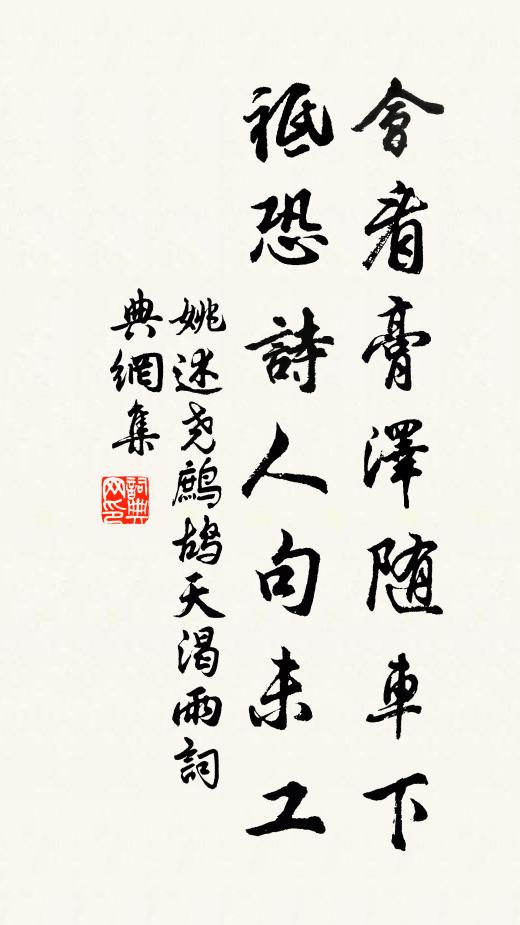 會看膏澤随車下
祗恐詩人句未工
姚述尧鷓鴣天渴雨詞
典網集
詞典网印